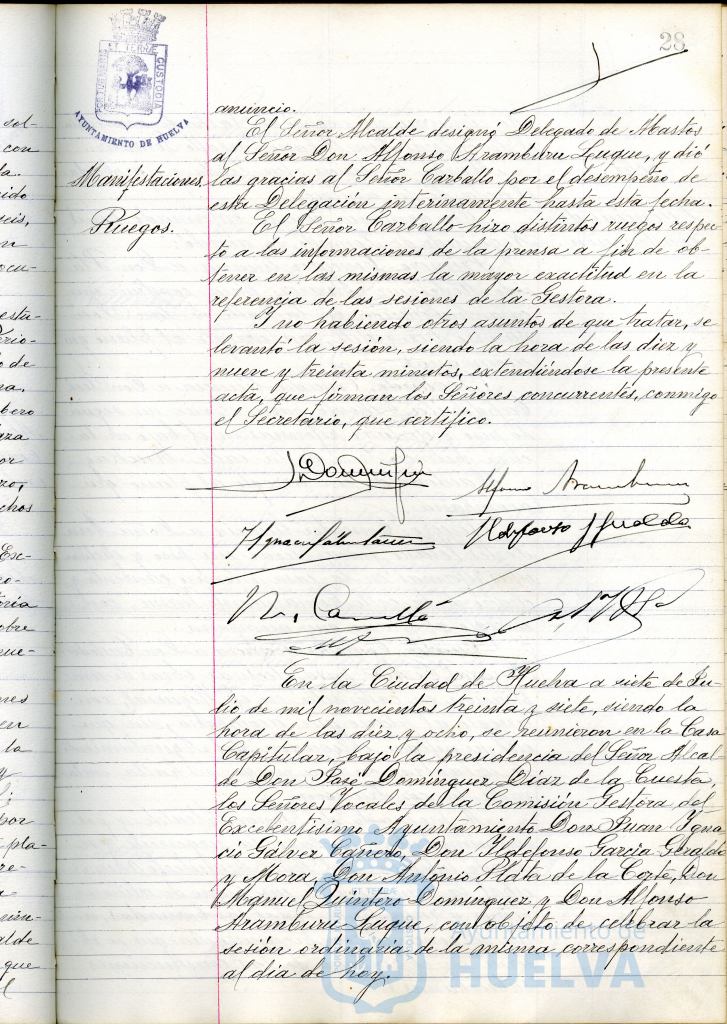 28
ET TERRÆ
CUSTODIA
AYUNTAMIENTO DE HUELVA
Manifestaciones.
Ruegos.
anuncio.
El Señor Alcalde designó Delegado de Mastos
al Señor Don Alfonso Aramburu Luque, y dió
las gracias al Señor Carballo por el desempeño de
esta Delegación interinamente hasta esta fecha.
El Señor Carballo hizo distintos ruegos respec-
to a las informaciones de la prensa a fin de ob-
tener en las mismas la mayor exactitud en la
referencia de las sesiones de la Gestora.
Y no habiendo otros asuntos de que tratar, se
levantó la sesión, siendo la hora de las diez y
nueve y treinta minutos, extendiéndose la presente
acta, que firman los Señores concurrentes, conmigo
el Secretario, que certifico.
Alfonso Aramburu
Ildefonso Giraldo
En la Ciudad de Huelva a siete de Ju-
lio de mil novecientos treinta y siete, siendo la
hora de las diez y ocho, se reunieron en la Casa
Capitular, bajo la presidencia del Señor Alcal-
de Don José Domínguez Díaz de la Cuesta,
los Señores Vocales de la Comisión Gestora del
Excelentísimo Ayuntamiento Don Juan Igna
cio Gálvez Cañero, Don Ildefonso García Geraldo
y Mora, Don Antonio Plata de la Corte, Don
Manuel Quintero Domínguez y Don Alfonso
Aramburu Luque, con objeto de celebrar la
sesión ordinaria de la misma correspondiente
al día de hoy.
Ayuntamiento de
HUELVA